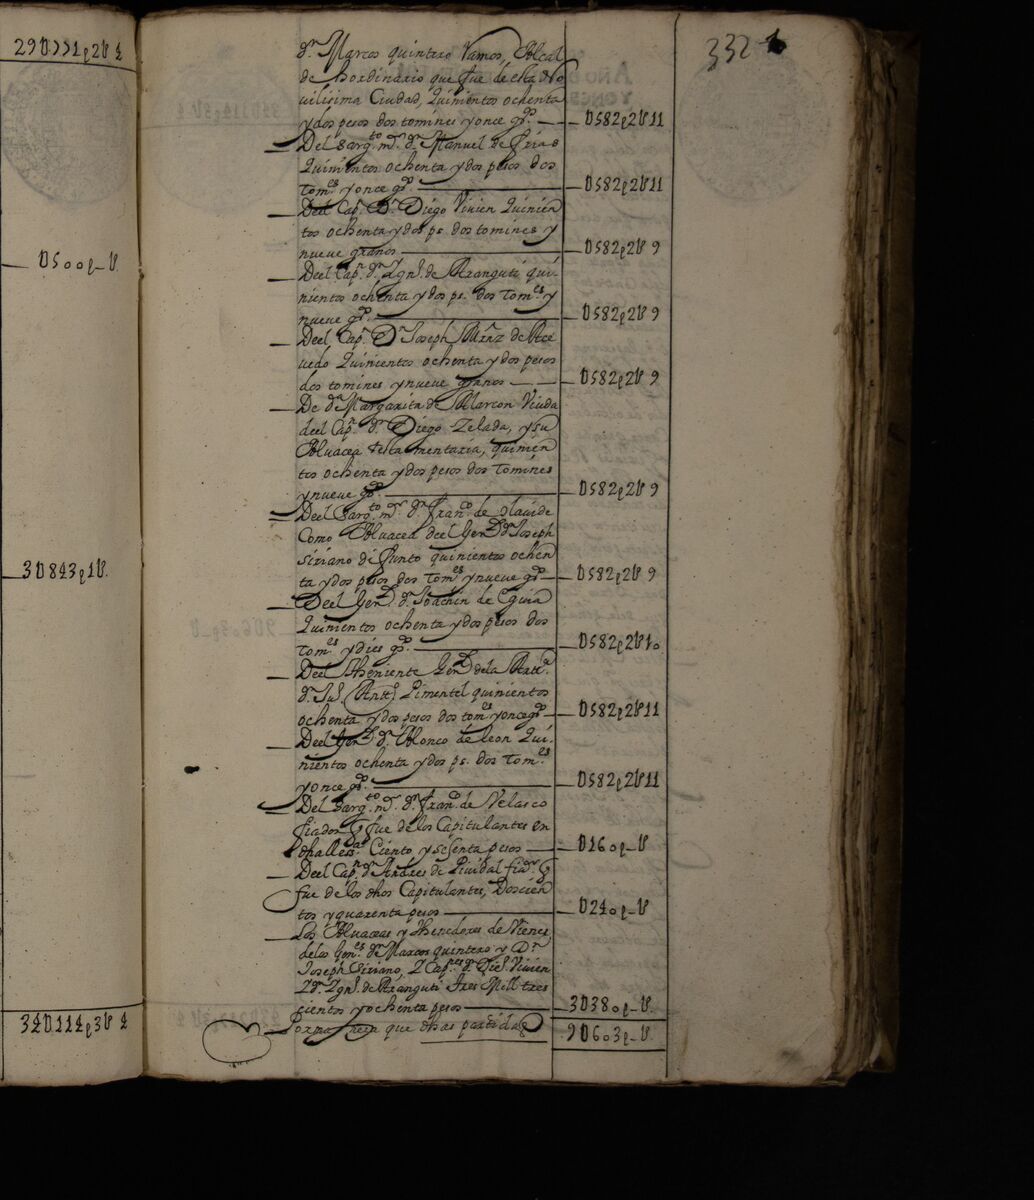 29U771p2t4
U500p_t
3U843p1t.
34U114p3t4
332
Dn Marcos quintero Ramos, Alcal
de hordinario que fue de esta No
vilisima Ciudad, Quinientos ochenta
y dos pesos dos tomines y once gs. — U582p2t11
Del Sargto mr. Dn Manuel de Frias
Quinientos ochenta y dos pesos dos
Tomes y once gs. — U582p2t11
Deel Capn Dn Diego Vivien Quinien
tos ochenta y dos ps. dos tomines y
nueve granos — U582p2t9
Deel Capn Dn Ygno. de Aranguti qui-
nientos ochenta y dos ps. dos Tomes y
nueve gs. — U582p2t9
Deel Capn Dn Joseph Mrnz de Ace
vedo Quinientos ochenta y dos pesos
dos tomines y nueve granos — U582p2t9
De Da Margarita de Alarcon Viuda
deel Capn Dn Diego Zelada, y su
Alvacea testamentaria, quinien
tos ochenta y dos pesos dos Tomines
y nueve gs. — U582p2t9
Deel Sargto mr. Dn Franco de
Como Alvacea deel Genl Dn Joseph
Siriano difunto quinientos ochen
ta y dos pesos dos Tomes y nueve gs — U582p2t9
Deel Genl Dn Joachin de Eguia
Quinientos ochenta y dos pesos dos
Tomes y dies gs. — U582p2t10
Deel Theniente Genl de la Arta
Dn Ju. Antto Pimentel quinientos
ochenta y dos pesos dos tomes y once gs — U582p2t11
Deel Genl Dn Alonco de leon Qui-
nientos ochenta y dos ps. dos Tomes
y once gs. — U582p2t11
Del Sargto mr. Dn Franco de Velasco
fiador q fue de los Capitulantes en
Ciento y sesenta pesos — U160p_t
Deel Capn Dn Andres de Pividal fiador q
fue de los dhos Capitulantes, Doscien
tos y quarenta pesos — U240p_t
Los Alvaceas y thenedores de Vienes
de los Genes Dn Marcos quintero y Dn
Joseph Siriano, Y Capnes Dn Dieo Vivien
Y Dn Ygno. de Aranguti tres Mill tres
cientos y ochenta pesos — 3U380p_t.
Por maña que dhas partidas 9U603p_t.